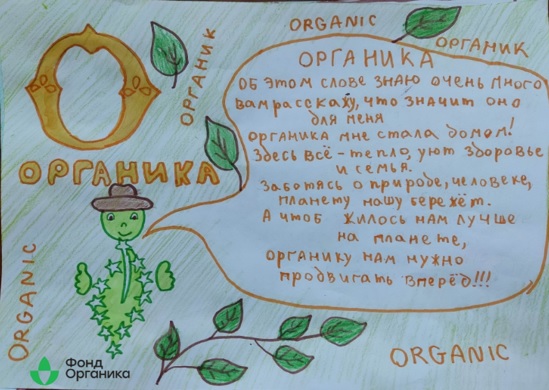 О
ОРГАНИКА
ОРГАНИК
ORGANIC
ОРГАНИК
ОРГАНИКА
ОБ ЭТОМ СЛОВЕ ЗНАЮ ОЧЕНЬ МНОГО
ВАМ РАССКАЖУ, ЧТО ЗНАЧИТ ОНО
ДЛЯ МЕНЯ
ОРГАНИКА МНЕ СТАЛА ДОМОМ!
ЗДЕСЬ ВСЁ - ТЕПЛО, УЮТ ЗДОРОВЬЕ
И СЕМЬЯ.
ЗАБОТЯСЬ О ПРИРОДЕ, ЧЕЛОВЕКЕ,
ПЛАНЕТУ НАШУ БЕРЕЖЁТ.
А ЧТОБ ЖИЛОСЬ НАМ ЛУЧШЕ
НА ПЛАНЕТЕ,
ОРГАНИКУ НАМ НУЖНО
ПРОДВИГАТЬ ВПЕРЁД!!!
ORGANIC
ORGANIC
Фонд
Органика